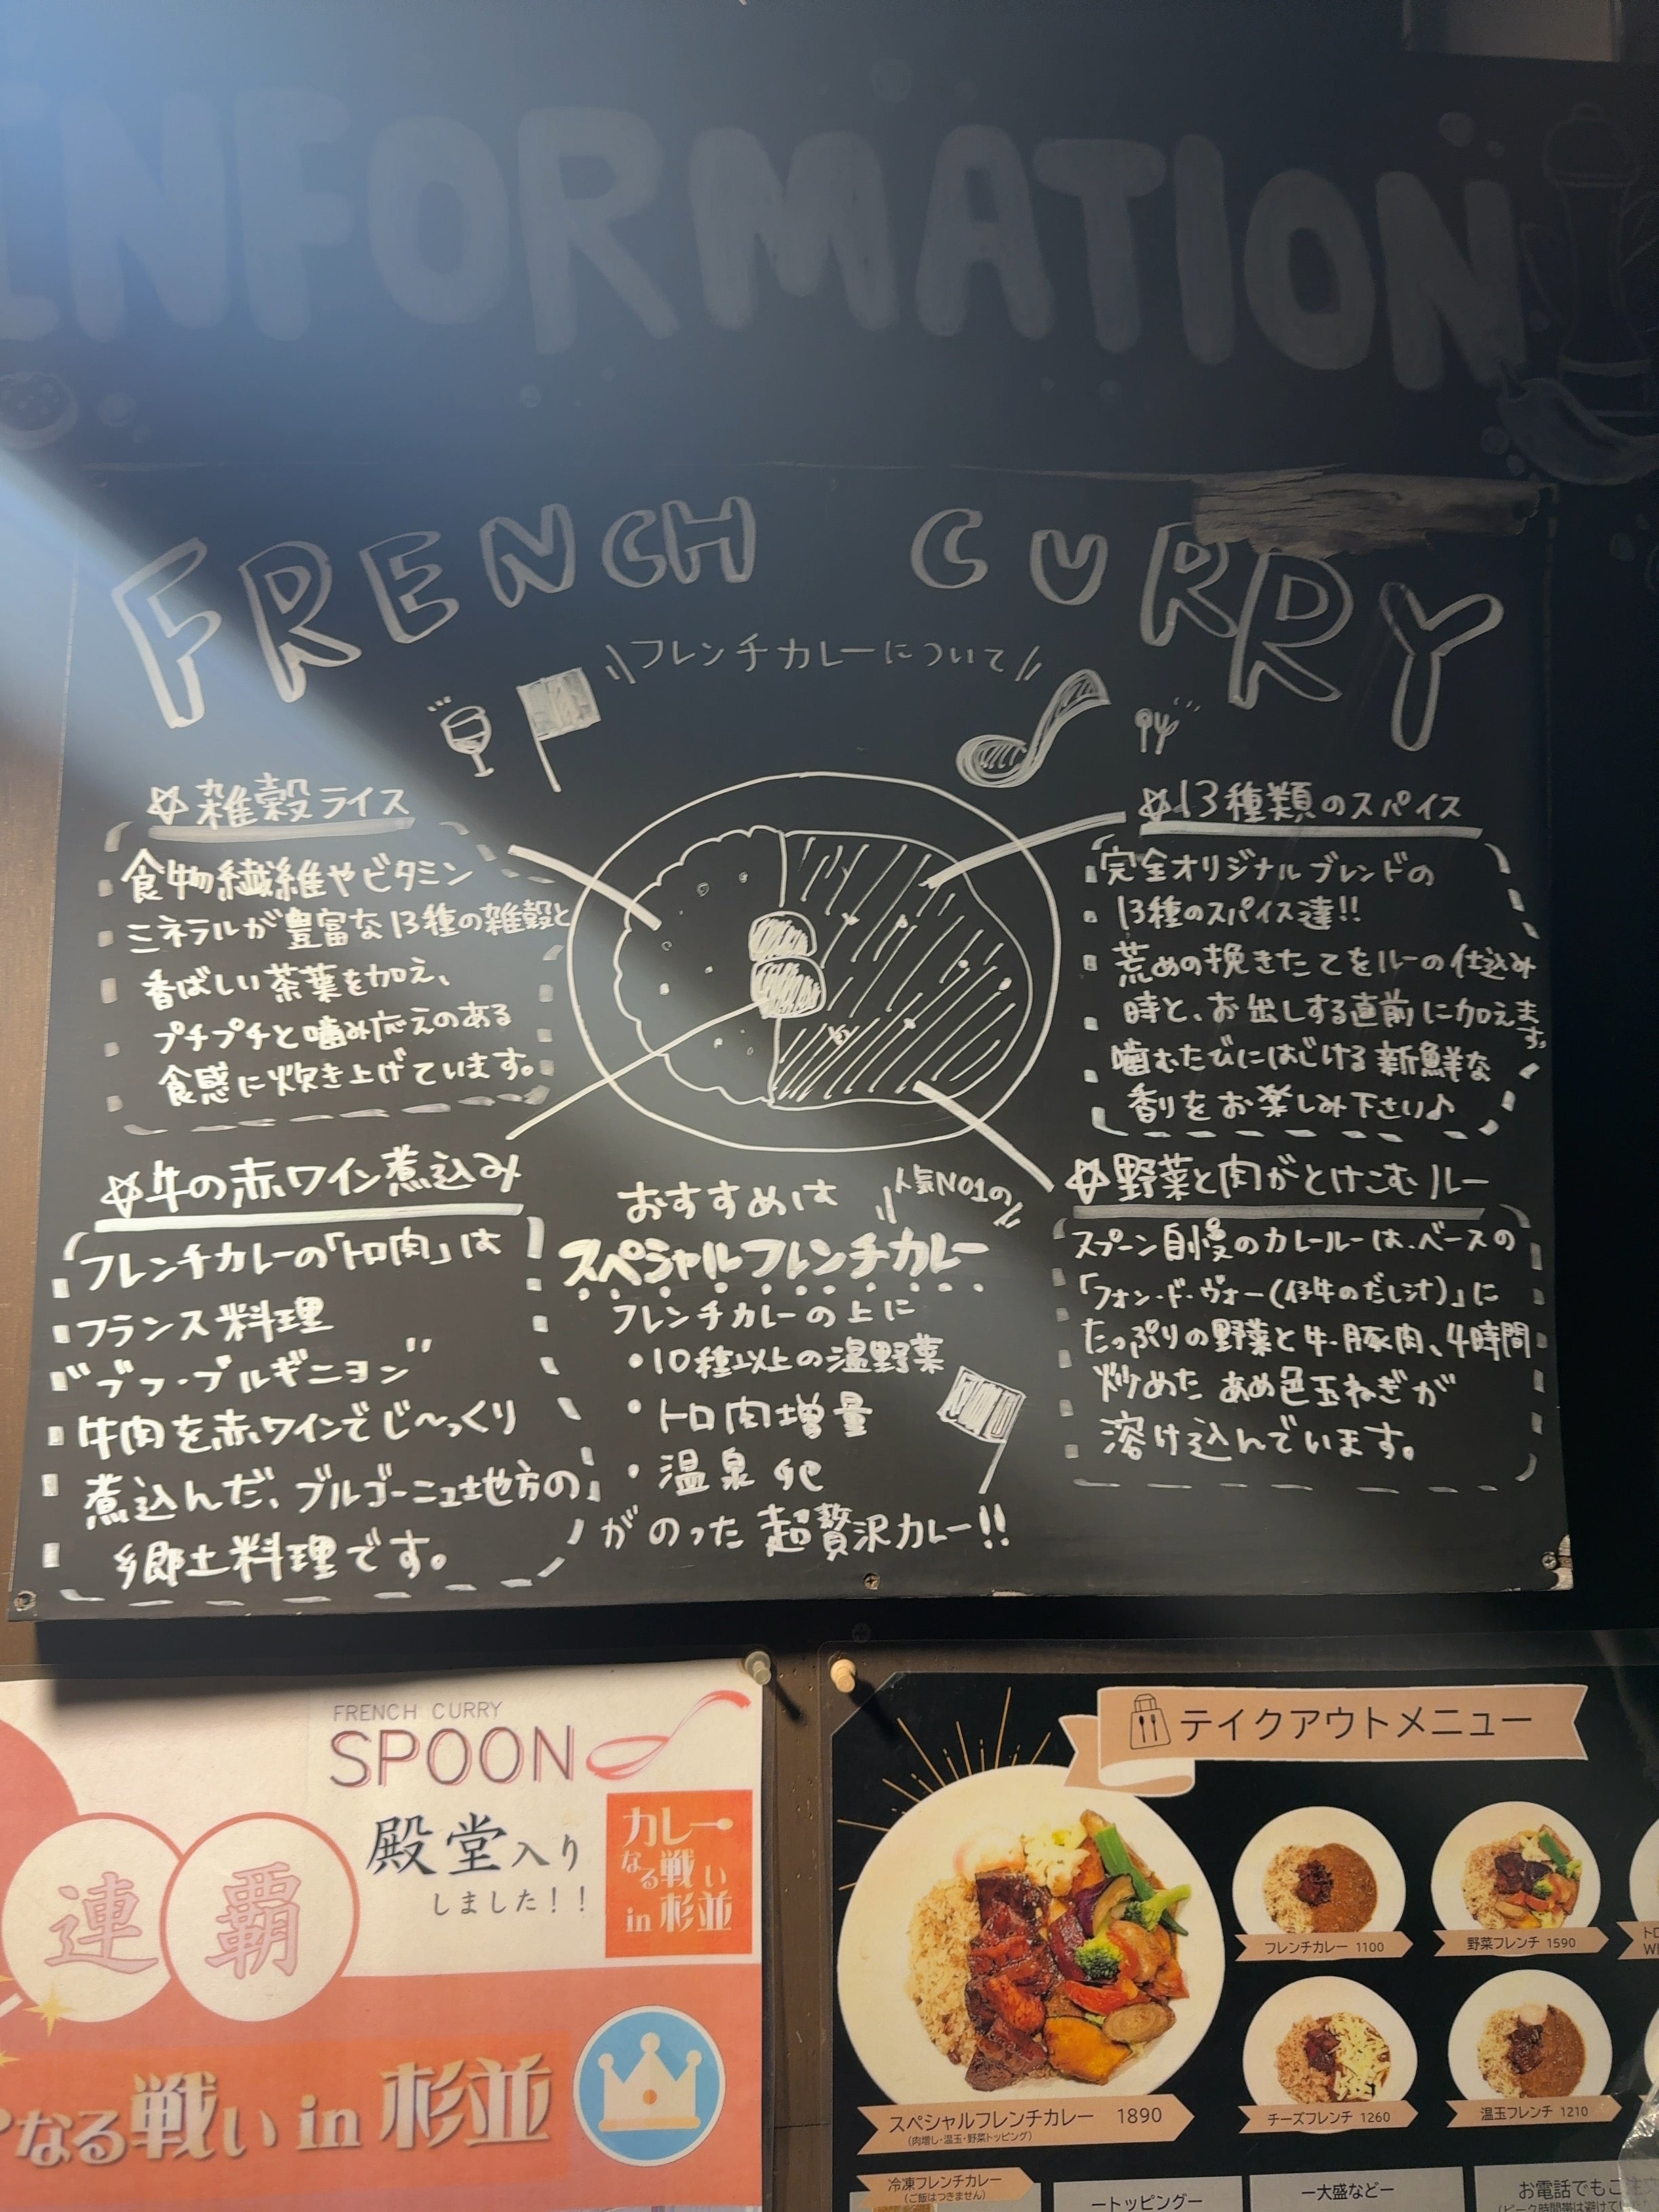 INFORMATION
FRENCH CURRY
フレンチカレーについて
☆雑穀ライス
食物繊維やビタミン
ミネラルが豊富な13種の雑穀と
香ばしい茶葉を加え、
プチプチと噛み応えのある
食感に炊き上げています。
☆13種類のスパイス
完全オリジナルブレンドの
13種のスパイス達!!
荒めの挽きたてをルーの仕込み
時と、お出しする直前に加えます。
噛むたびにはじける新鮮な
香りをお楽しみ下さい♪
☆牛の赤ワイン煮込み
フレンチカレーの「トロ肉」は
フランス料理
"ブフ・ブルギニヨン"
牛肉を赤ワインでじ〜っくり
煮込んだ、ブルゴーニュ地方の
郷土料理です。
おすすめは
人気NO1の
スペシャルフレンチカレー
フレンチカレーの上に
・10種以上の温野菜
・トロ肉増量
・温泉
がのった超贅沢カレー!!
☆野菜と肉がとけこむルー
スプーン自慢のカレールーは、ベースの
「フォン・ド・ヴォー(仔牛のだし汁)」に
たっぷりの野菜と牛・豚肉、4時間
炒めたあめ色玉ねぎが
溶け込んでいます。
FRENCH CURRY
SPOON
殿堂入り
しました!!
カレー
なる戦い
in 杉並
連覇
なる戦い in 杉並
テイクアウトメニュー
フレンチカレー 1100
野菜フレンチ 1590
スペシャルフレンチカレー 1890
(肉増し・温玉・野菜トッピング)
チーズフレンチ 1260
温玉フレンチ 1210
冷凍フレンチカレー
(ご飯はつきません)
ートッピングー
ー大盛などー
お電話でもご注文